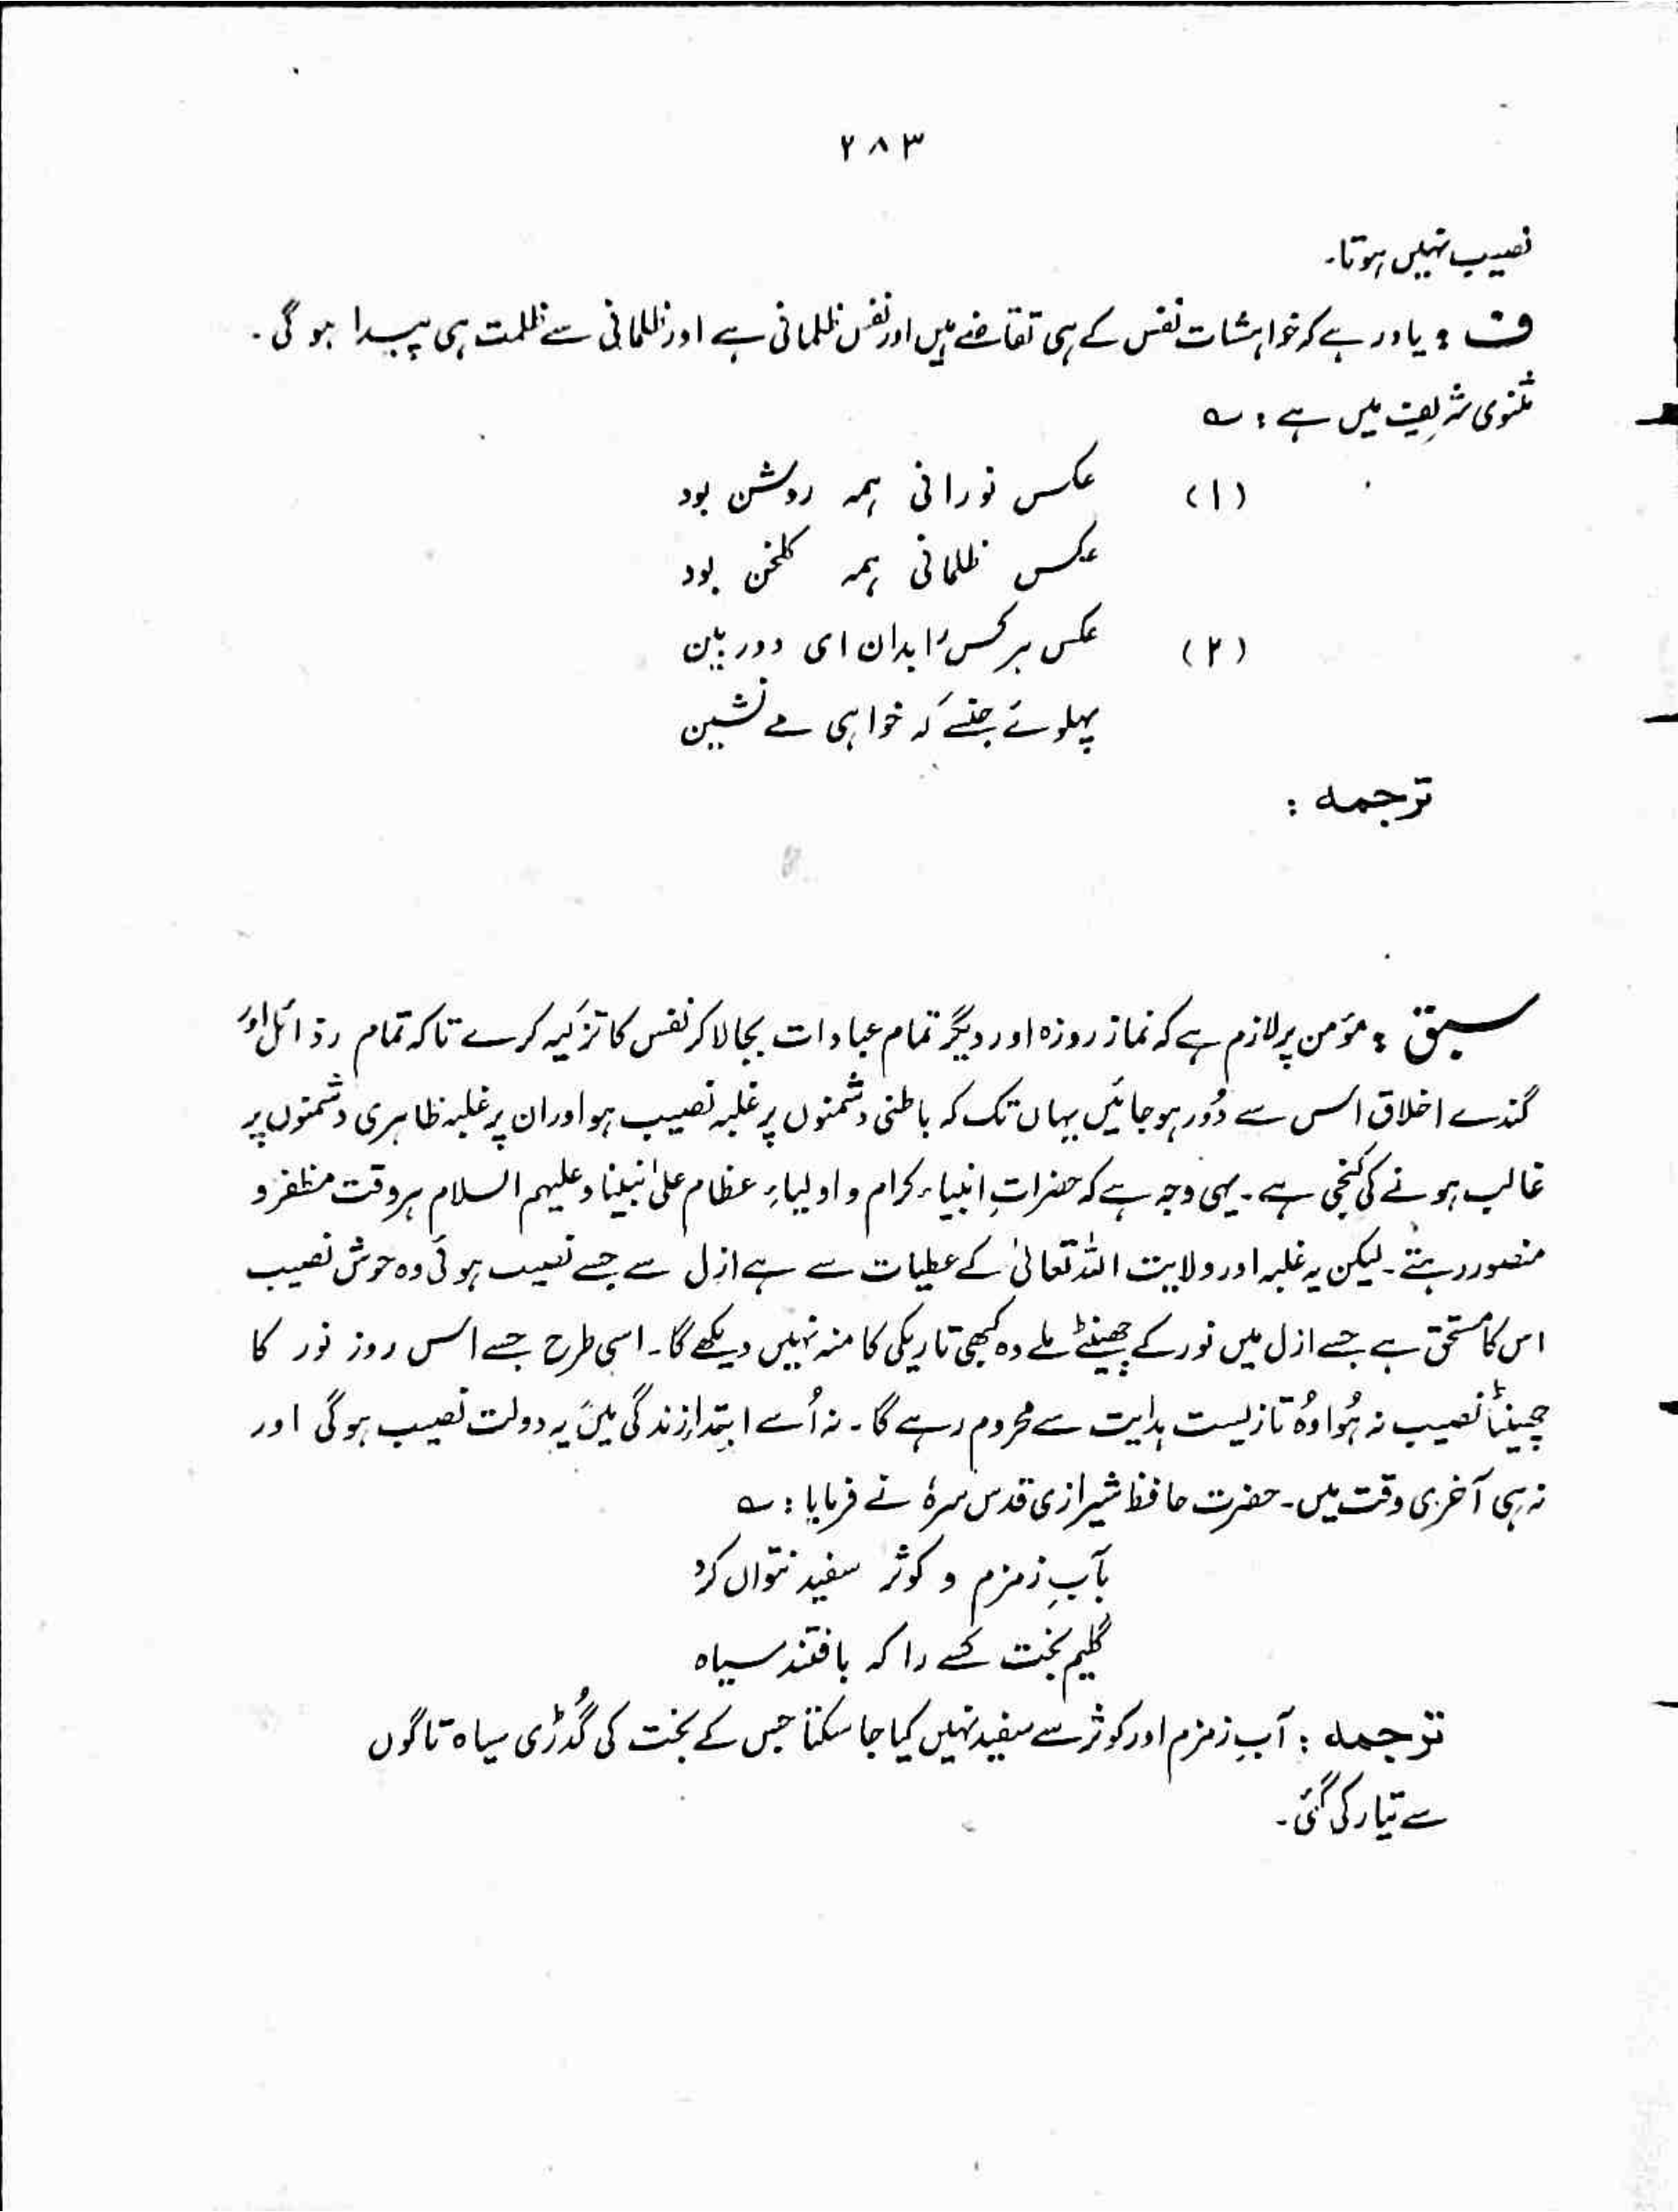 ۲۸۳
نصیب نہیں ہوتا۔
ف : یاد رہے کہ خواہشات نفس کے ہی تقاضے ہیں اور نفس ظلمانی ہے اور ظلمانی سے ظلمت ہی پیدا ہوگی۔
مثنوی شریف میں ہے : ؎
(۱) عکس نورانی ہمہ روشن بود
عکس ظلمانی ہمہ گلخن بود
(۲) عکس ہر کس را بدان ای دوربین
پہلوئے جنسے کہ خواہی مے نشین
ترجمہ :
سبق : مؤمن پر لازم ہے کہ نماز روزہ اور دیگر تمام عبادات بجا لا کر نفس کا تزکیہ کرے تاکہ تمام رذائل اور
گندے اخلاق اس سے دُور ہو جائیں یہاں تک کہ باطنی دشمنوں پر غلبہ نصیب ہو اور ان پر غلبہ ظاہری دشمنوں پر
غالب ہونے کی کنجی ہے۔ یہی وجہ ہے کہ حضراتِ انبیاء کرام و اولیاءِ عظام علیٰ نبینا و علیہم السلام ہر وقت مظفر و
منصور رہتے۔ لیکن یہ غلبہ اور ولایت اللہ تعالیٰ کے عطیات سے ہے ازل سے جسے نصیب ہوئی وہ خوش نصیب
اس کا مستحق ہے جسے ازل میں نور کے چھینٹے ملے وہ کبھی تاریکی کا منہ نہیں دیکھے گا۔ اسی طرح جسے اس روز نور کا
چھینٹا نصیب نہ ہُوا وُہ تا زیست ہدایت سے محروم رہے گا۔ نہ اُسے ابتداءِ زندگی میں یہ دولت نصیب ہوگی اور
نہ ہی آخری وقت میں۔ حضرت حافظ شیرازی قدس سرہٗ نے فرمایا : ؎
بآبِ زمزم و کوثر سفید نتواں کرد
گلیم بخت کسے را کہ بافتند سیاہ
ترجمہ : آبِ زمزم اور کوثر سے سفید نہیں کیا جا سکتا جس کے بخت کی گُدڑی سیاہ تاگوں
سے تیار کی گئی۔